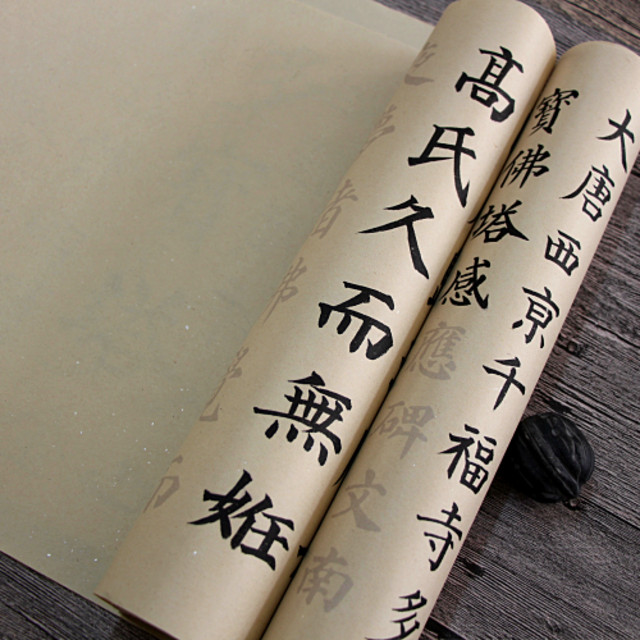 大唐西京千福寺多
寶佛塔感應碑文南
高氏久而無姙